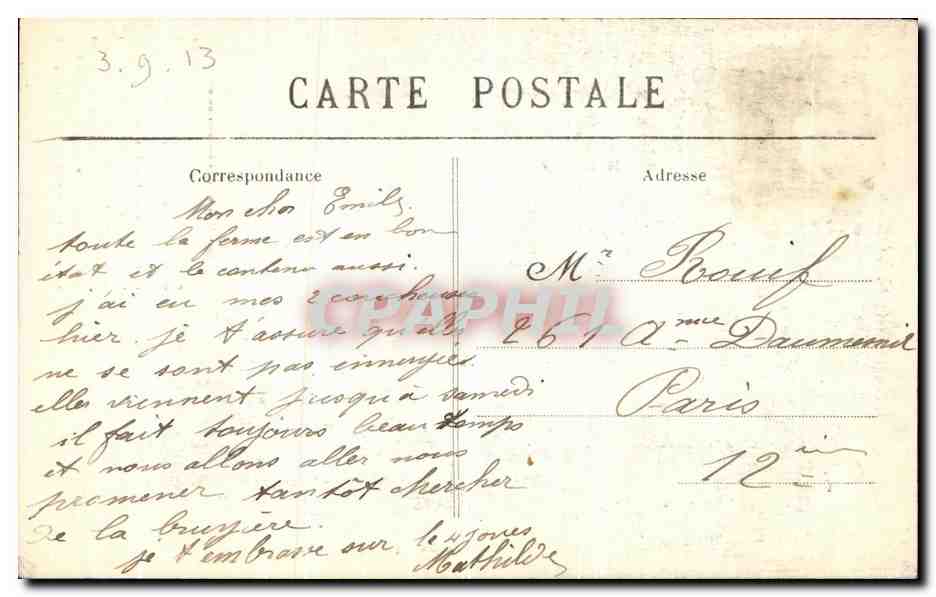 3.9.13
CARTE POSTALE
Correspondance
Adresse
Mon cher Emile,
toute la ferme est en bon
état et le contenu aussi.
j'ai eu mes 2
hier. je t'assure qu'elles
ne se sont pas ennuyées.
elles viennent jusqu'à samedi
il fait toujours beau temps
et nous allons aller nous
promener tantôt chercher
de la bruyère.
je t'embrasse sur le 4 joues
Mathilde
Mr Rouif
261 Anue Daumesnil
Paris
12ième
CPAPHIL